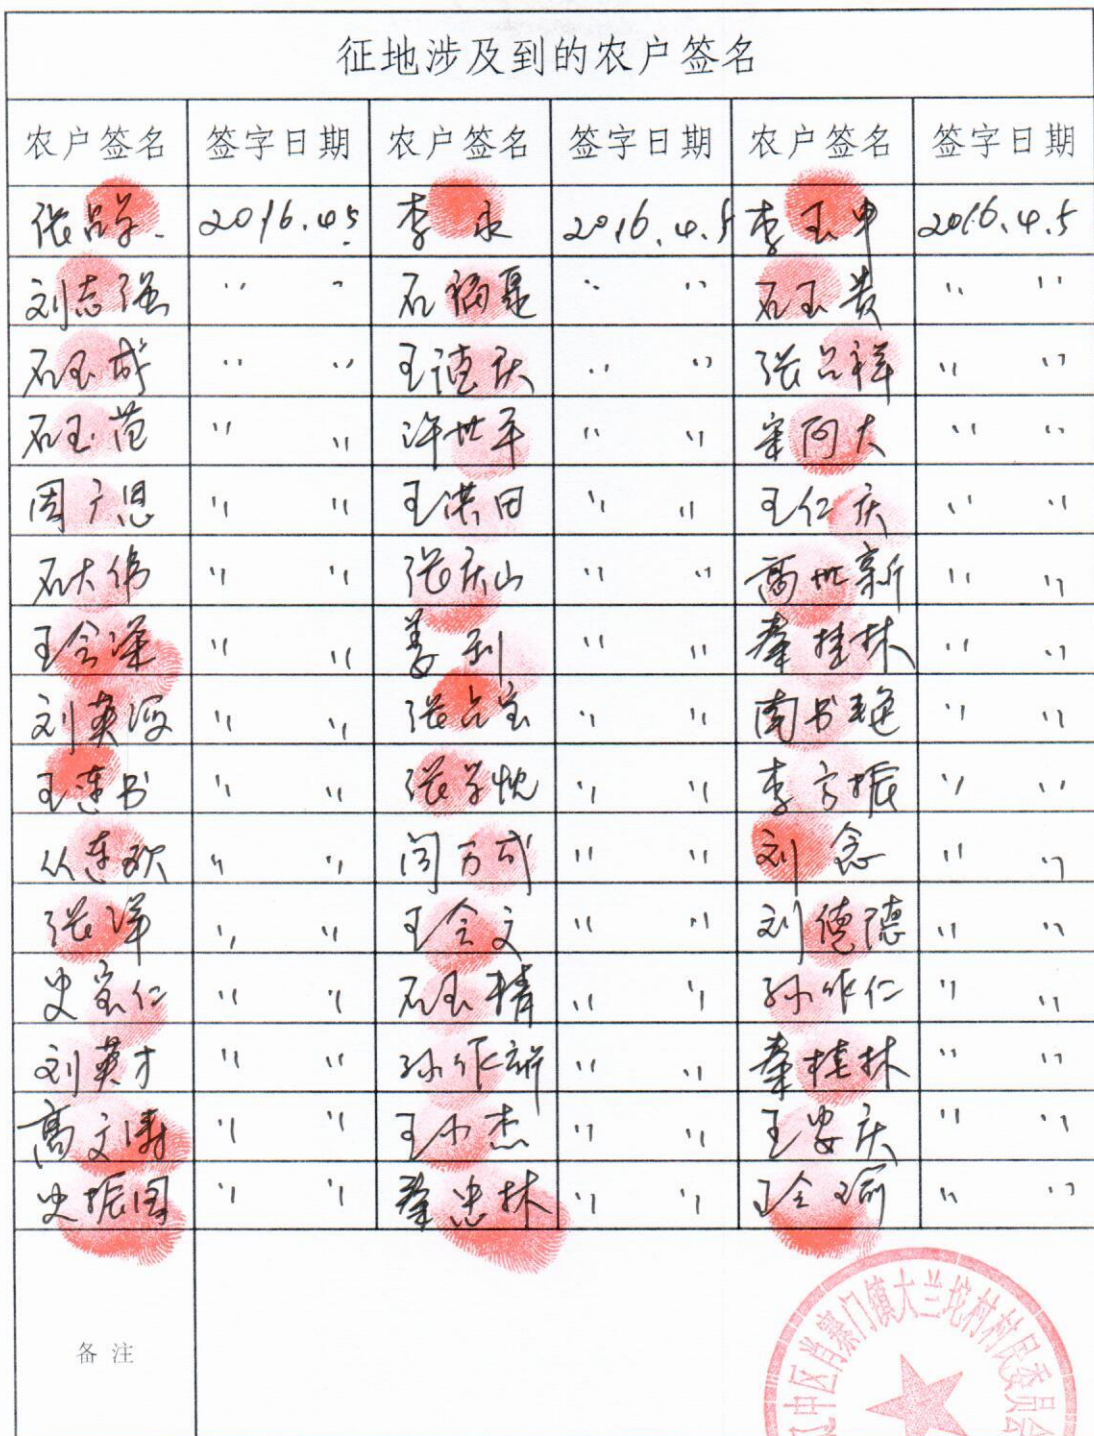 征地涉及到的农户签名
农户签名 签字日期 农户签名 签字日期 农户签名 签字日期
张占学. 2016.4.5 李永 2016.4.5 李玉中 2016.4.5
刘志强 〃 〃 石福星 〃 〃 石玉贵 〃 〃
石玉成 〃 〃 王德庆 〃 〃 张占祥 〃 〃
石玉范 〃 〃 许世军 〃 〃 阿大 〃 〃
周广恩 〃 〃 王洪田 〃 〃 王仁庆 〃 〃
石大伟 〃 〃 张庆山 〃 〃 高世新 〃 〃
王会深 〃 〃 姜利 〃 〃 秦桂林 〃 〃
刘英海 〃 〃 张占宝 〃 〃 南书艳 〃 〃
王连书 〃 〃 张学忱 〃 〃 李方振 〃 〃
从连欢 〃 〃 闫万成 〃 〃 刘念 〃 〃
张洋 〃 〃 王会文 〃 〃 刘德 〃 〃
史宝仁 〃 〃 石玉精 〃 〃 孙作仁 〃 〃
刘英才 〃 〃 孙作新 〃 〃 秦桂林 〃 〃
高文涛 〃 〃 王小杰 〃 〃 王安庆 〃 〃
史振国 〃 〃 秦忠林 〃 〃 王会 〃 〃
备注
中区肖寨门镇大兰坨村村民委员会